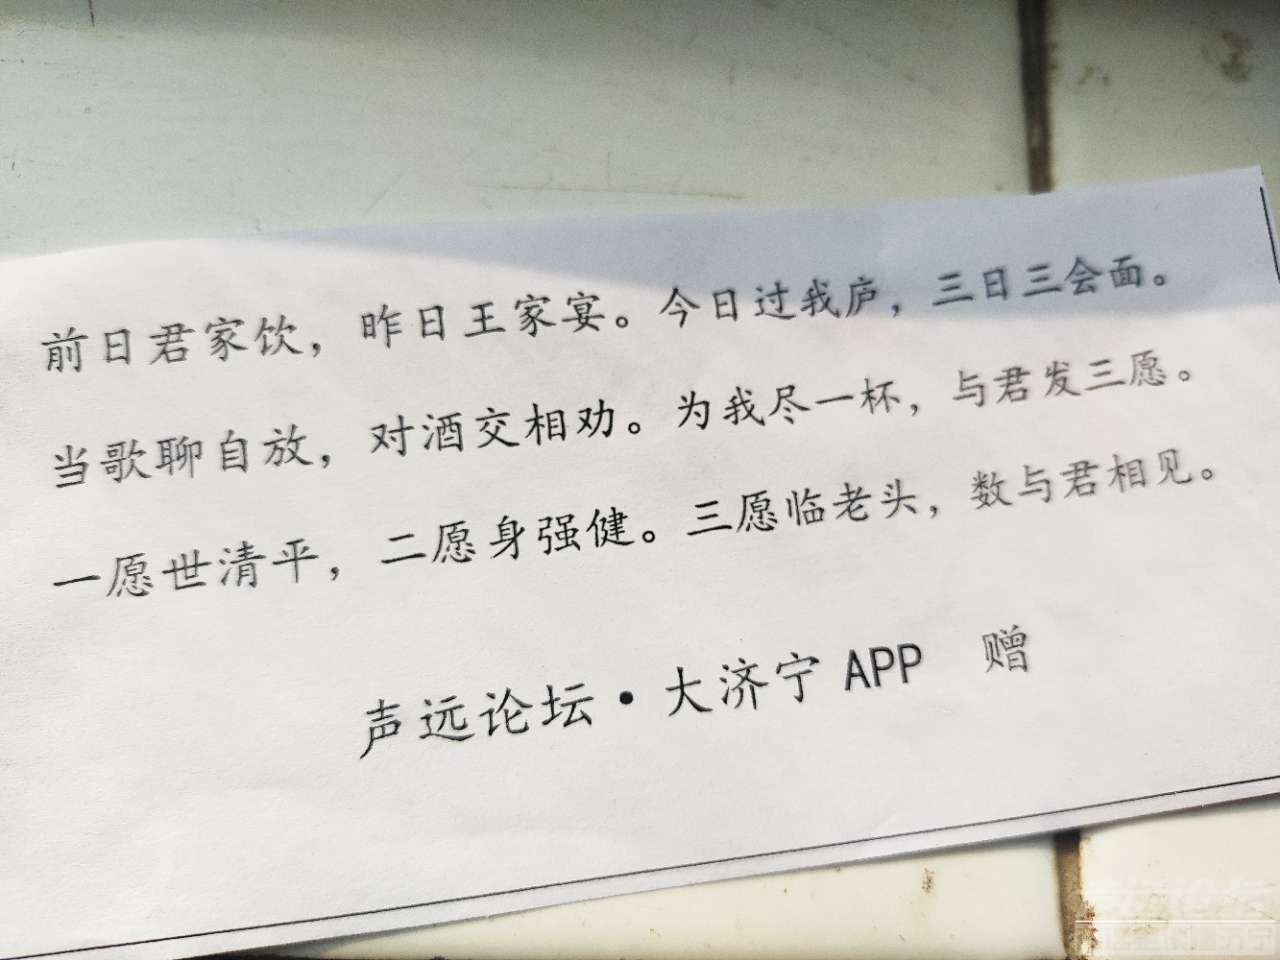 前日君家饮，昨日王家宴。今日过我庐，三日三会面。
当歌聊自放，对酒交相劝。为我尽一杯，与君发三愿。
一愿世清平，二愿身强健。三愿临老头，数与君相见。
声远论坛·大济宁 APP 赠
声远论坛